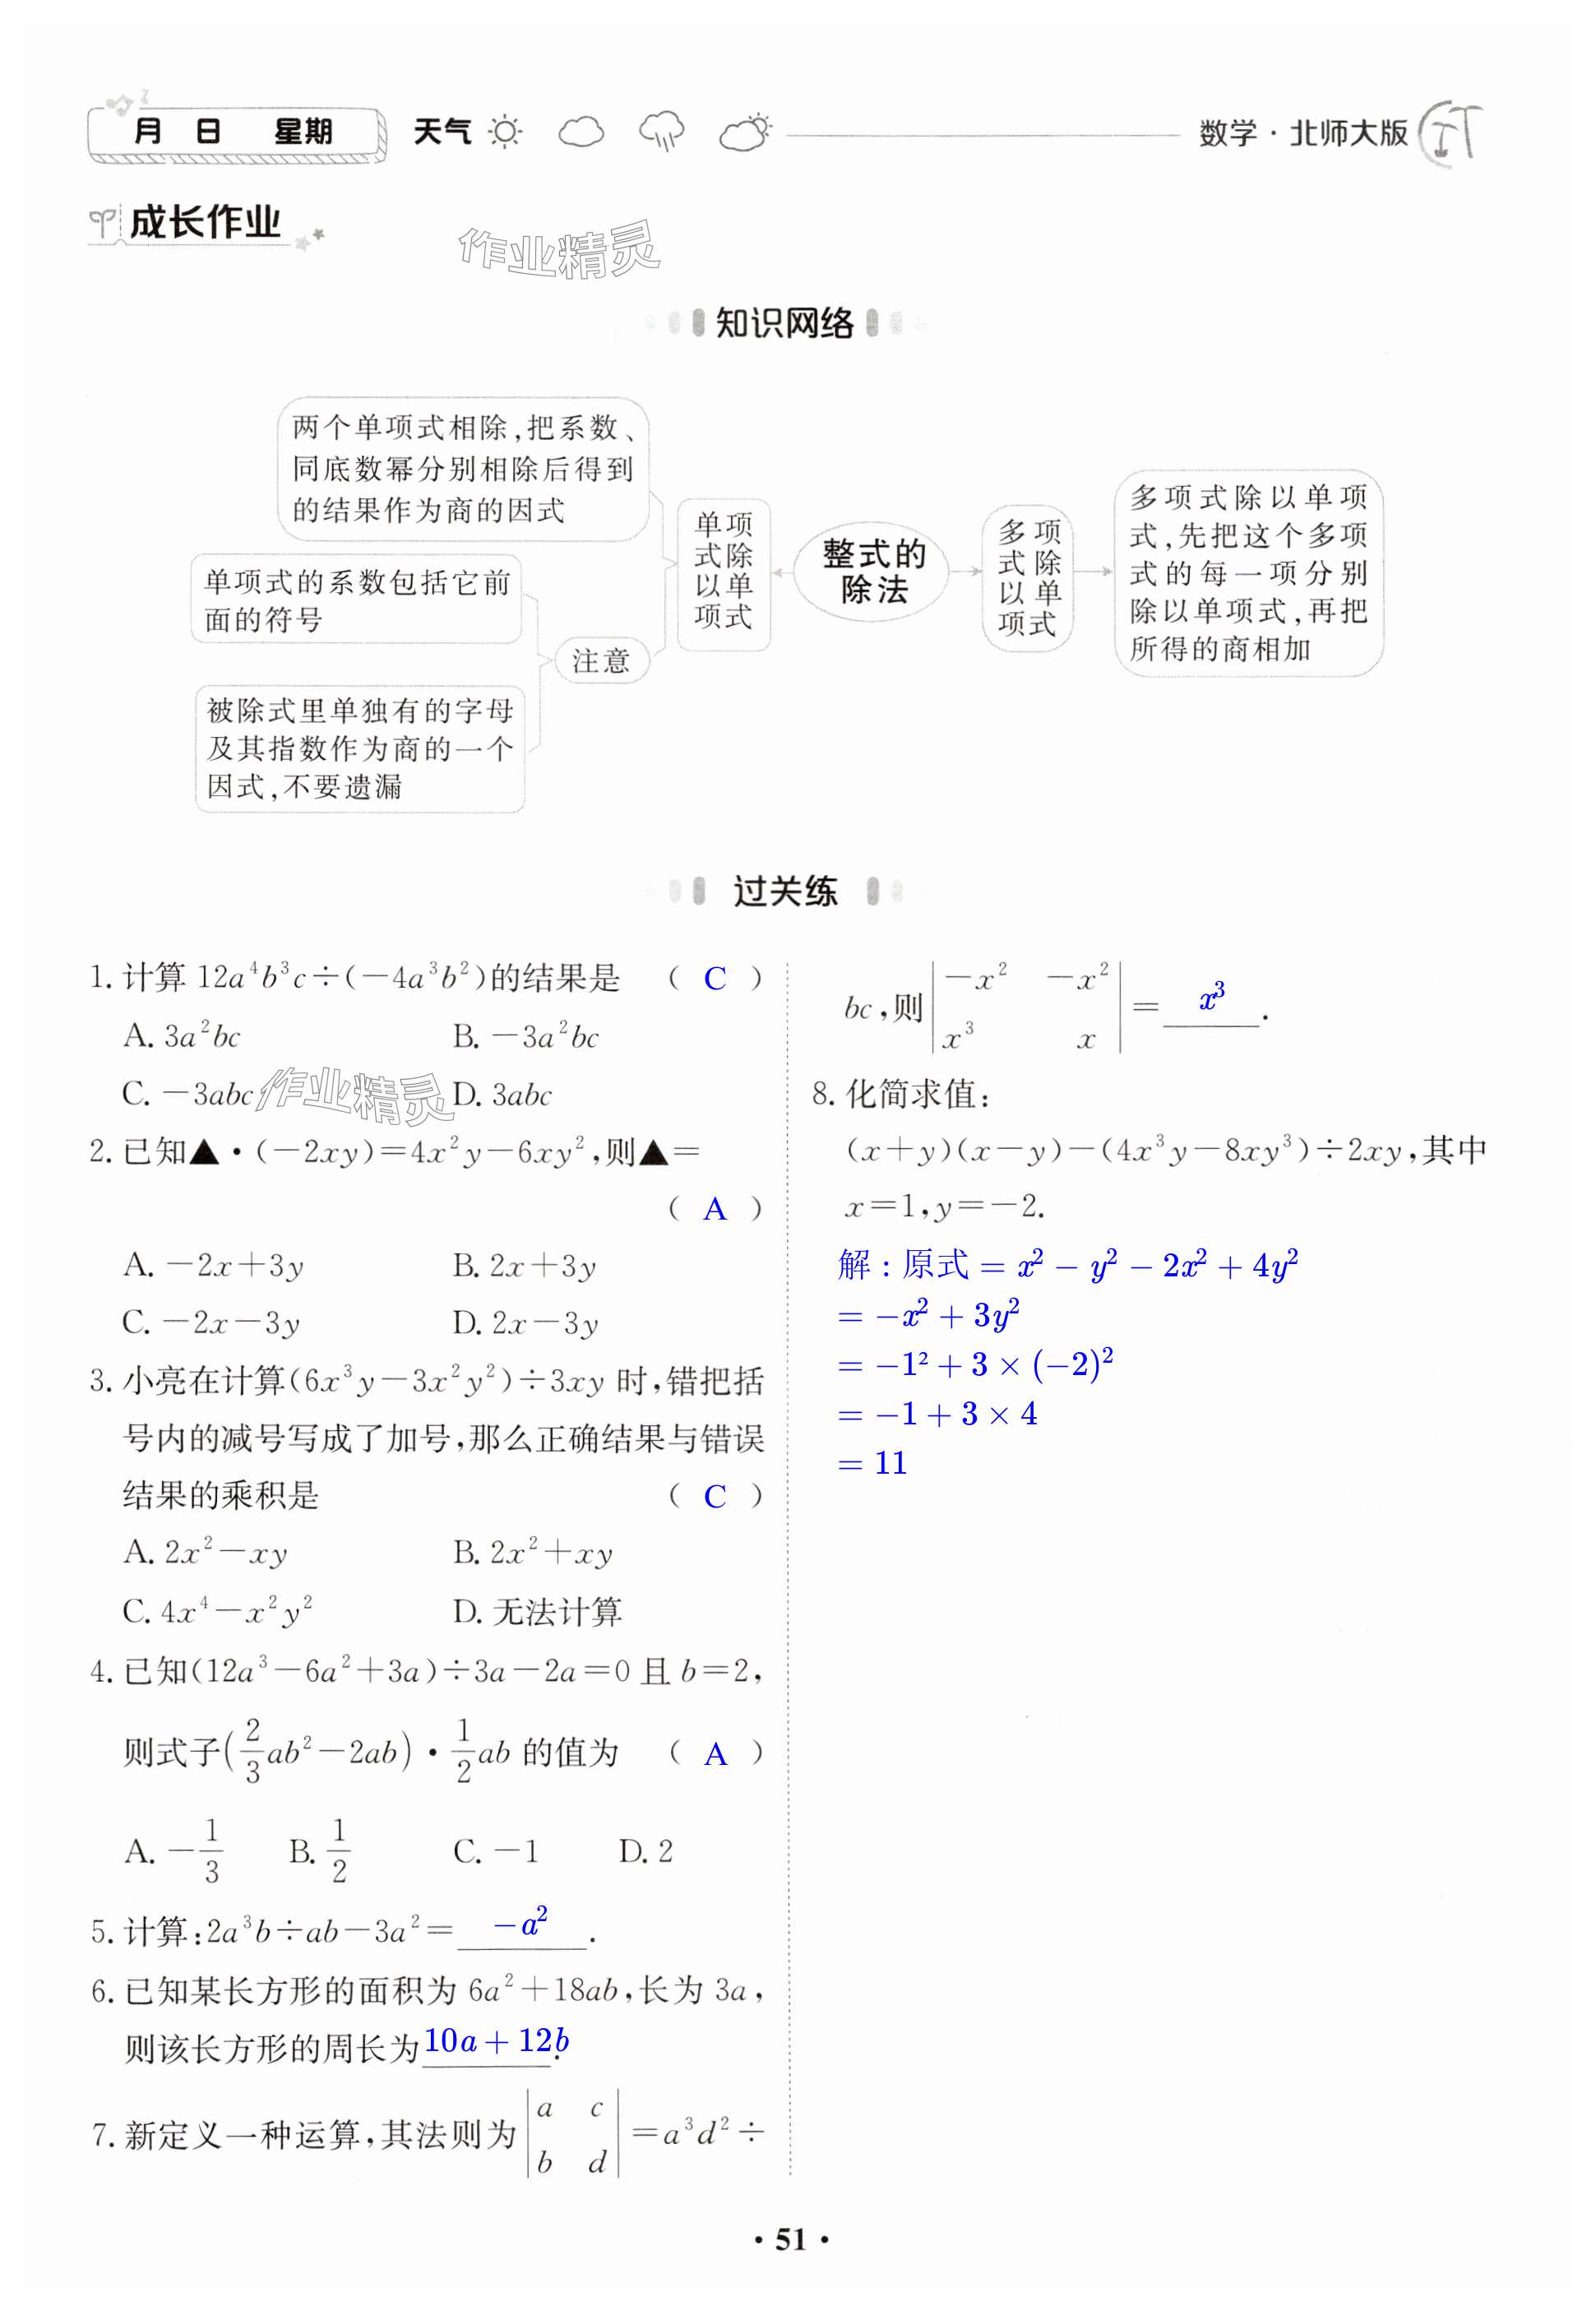 月 日 星期 天气 数学·北师大版
成长作业
作业精灵
知识网络
两个单项式相除,把系数、
同底数幂分别相除后得到
的结果作为商的因式
单项式的系数包括它前
面的符号
注意
被除式里单独有的字母
及其指数作为商的一个
因式,不要遗漏
单项
式除
以单
项式
整式的
除法
多项
式除
以单
项式
多项式除以单项
式,先把这个多项
式的每一项分别
除以单项式,再把
所得的商相加
过关练
1. 计算 12a⁴b³c÷(−4a³b²)的结果是 ( C )
A. 3a²bc B. −3a²bc
C. −3abc D. 3abc
作业精灵
2. 已知▲·(−2xy)=4x²y−6xy²,则▲=
( A )
A. −2x+3y B. 2x+3y
C. −2x−3y D. 2x−3y
3. 小亮在计算(6x³y−3x²y²)÷3xy 时,错把括
号内的减号写成了加号,那么正确结果与错误
结果的乘积是 ( C )
A. 2x²−xy B. 2x²+xy
C. 4x⁴−x²y² D. 无法计算
4. 已知(12a³−6a²+3a)÷3a−2a=0 且 b=2,
则式子(2/3 ab²−2ab)·1/2 ab 的值为 ( A )
A. −1/3 B. 1/2 C. −1 D. 2
5. 计算:2a³b÷ab−3a²= −a² .
6. 已知某长方形的面积为 6a²+18ab,长为 3a,
则该长方形的周长为 10a+12b .
7. 新定义一种运算,其法则为 |a c; b d| =a³d²÷
bc,则 |−x² −x²; x³ x| = x³ .
8. 化简求值:
(x+y)(x−y)−(4x³y−8xy³)÷2xy,其中
x=1,y=−2.
解:原式 = x² − y² − 2x² + 4y²
= −x² + 3y²
= −1² + 3 × (−2)²
= −1 + 3 × 4
= 11
· 51 ·